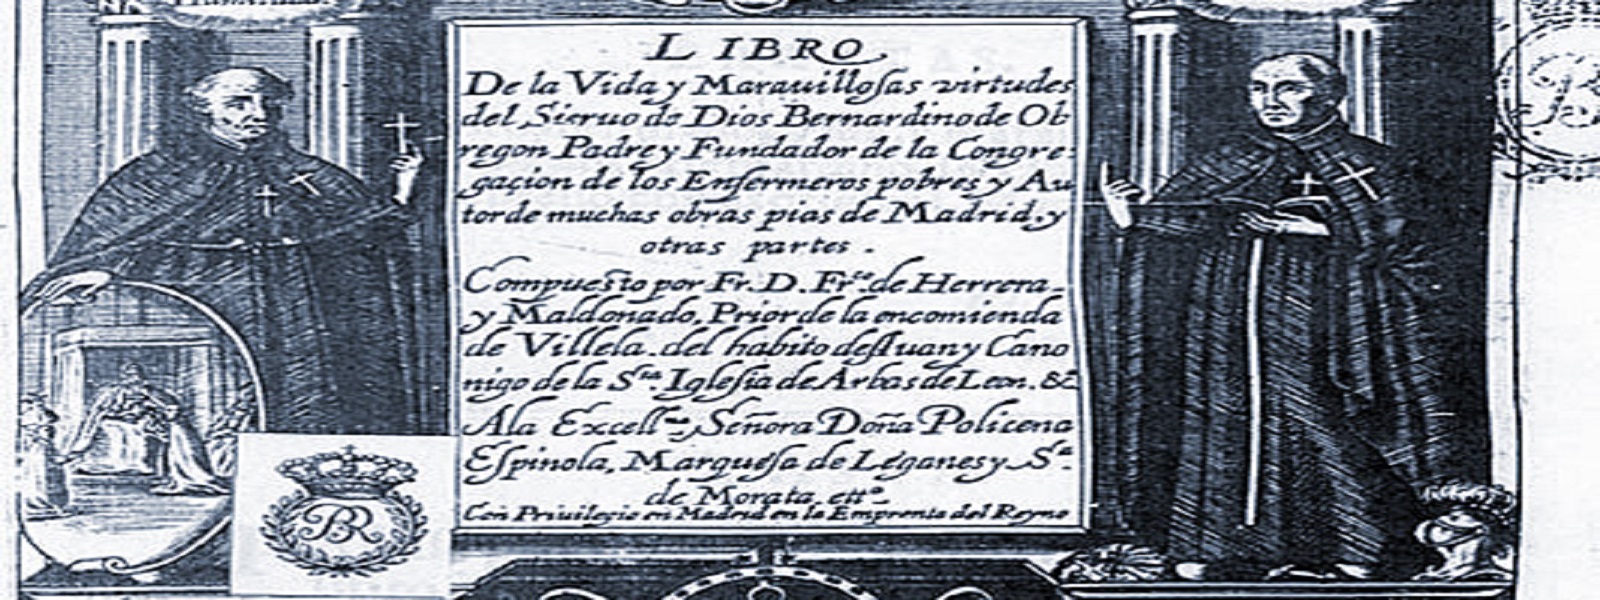 LIBRO
De la Vida y Marauillosas virtudes
del Sieruo de Dios Bernardino de Ob
regon Padre y Fundador de la Congre:
gaçion de los Enfermeros pobres y Au
tor de muchas obras pias de Madrid, y
otras partes.
Compuesto por Fr. D. Frco. de Herrera
y Maldonado, Prior de la encomienda
de Villela. del habito de S Iuan y Cano
nigo de la Sta Iglesia de Arbas de Leon. &c
Ala Excellma Señora Doña Policena
Espinola, Marquesa de Leganes y Sa.
de Morata, etta.
Con Priuilegio en Madrid en la Emprenta del Reyno
BR